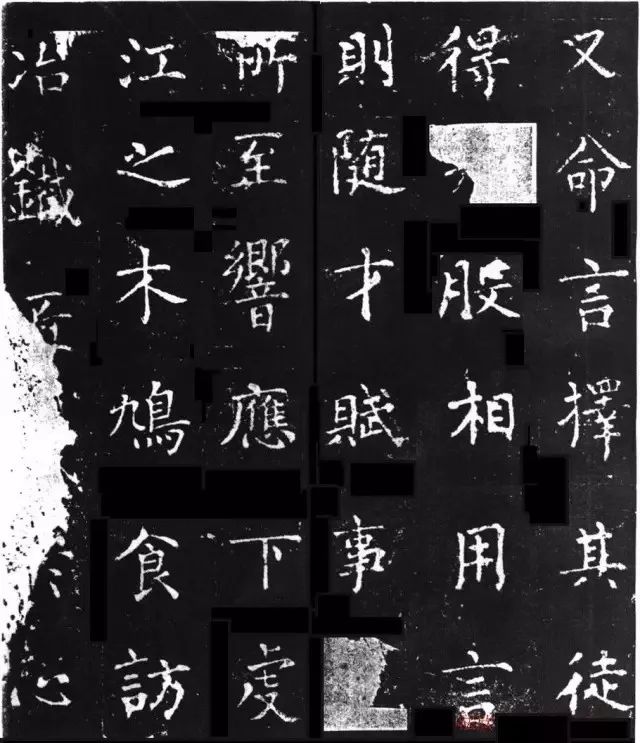 又命言擇其徒
得股相用言
則随才賦事
所至響應下虔
江之木鳩食訪
冶鐵